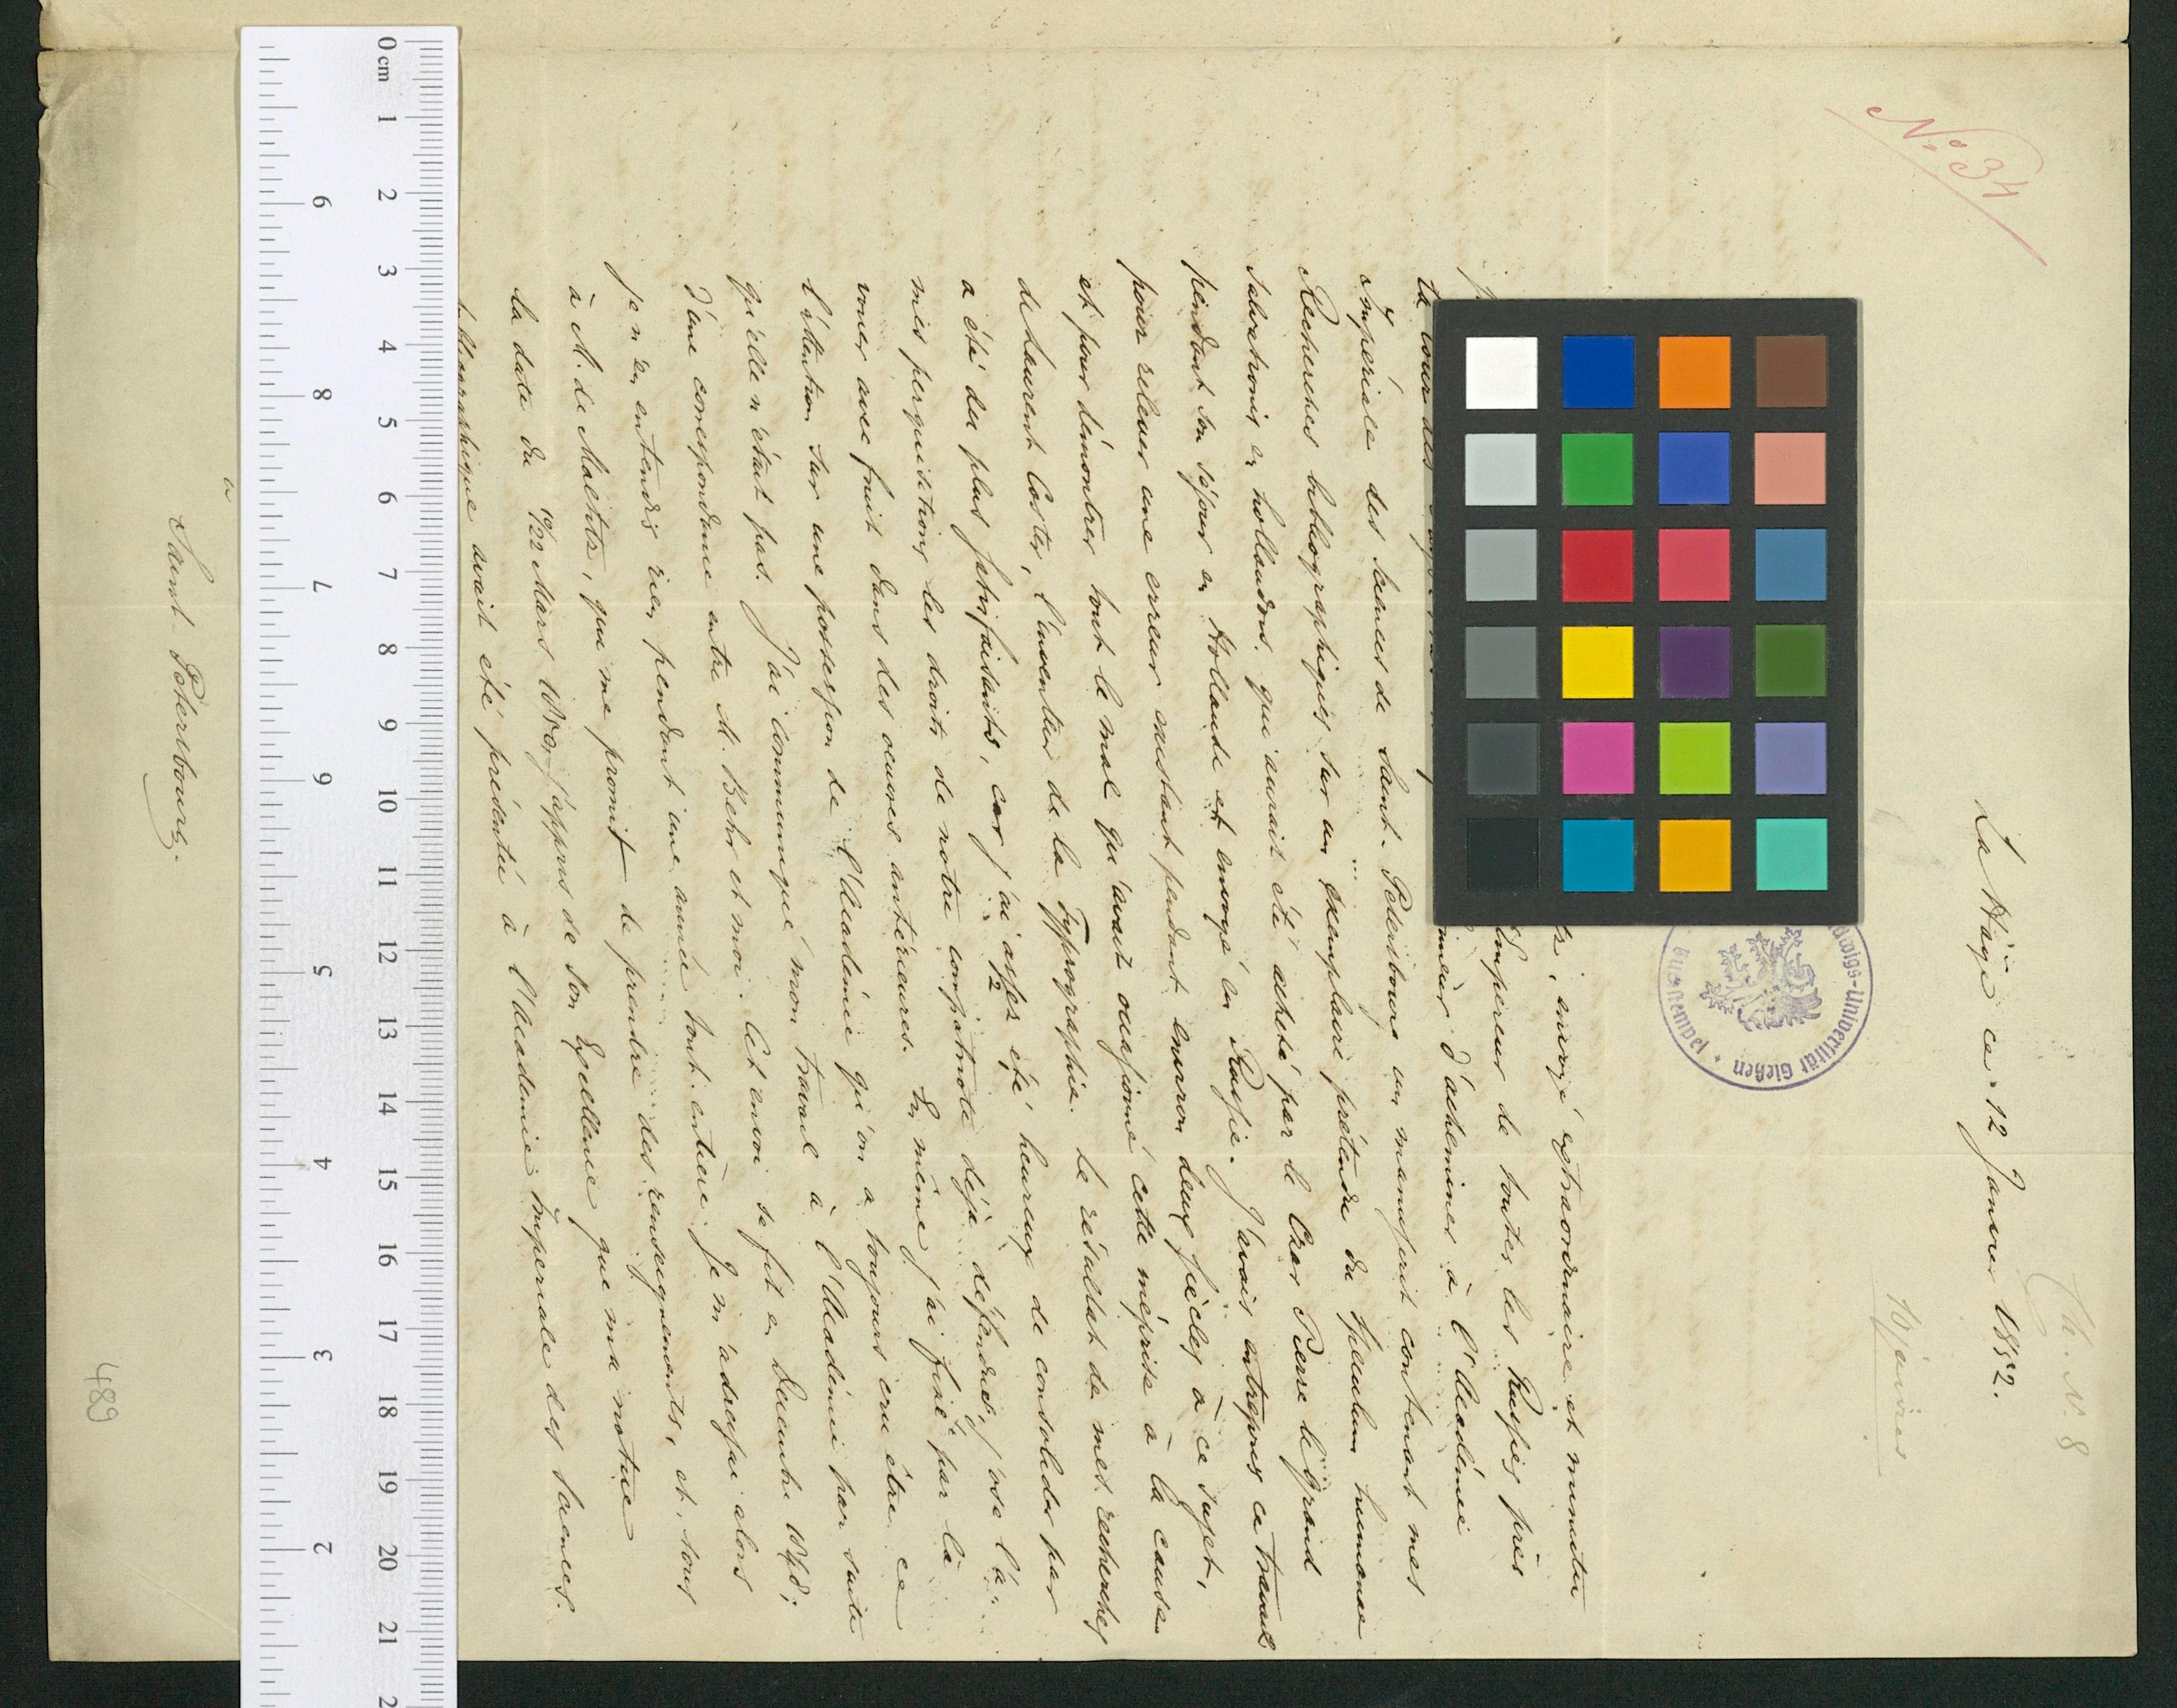 No 34
Ch. N. 8
La Haÿe ce 12 Janvier 1852.
10 janvier
Ludwigs-Universität Gießen
envoyé extraordinaire et ministre
l'Empereur de toutes les Russies près
la cour des d'acheminer à l'Académie
Impériale des Sciences de Saint-Petersbourg un manuscrit contenant mes
Recherches bibliographiques sur un exemplaire prétendu du Speculum humanae
salvationis en hollandois, qui aurait été acheté par le Czar Pierre le Grand
pendant son séjour en Hollande et envoyé en Russie. J'avais entrepris ce travail
pour relever une erreur existant pendant environ deux siècles à ce sujet,
et pour démontrer tout le mal qu'avait occasionné cette méprise à la cause
de Laurent Coster, l'inventeur de la Typographie. Le résultat de mes recherches
a été des plus satisfaisants, car j'ai assez été heureux de consolider par
mes perquisitions les droits de notre compatriote déjà défendus, j'ose l'a-
vouer avec fruit dans des œuvres antérieures. En même j'ai fixé par là
l'attention sur une possession de l'Académie qu'on a toujours cru être ce
qu'elle n'était pas. J'ai communiqué mon travail à l'Académie par suite
d'une correspondance entre M. Behr et moi. Cet envoi se fit en Décembre 1848;
je n'en entendis rien pendant une année tout-entière. Je m'adressai alors
à M. de Maltitz, qui me promit de prendre des renseignements, et, sous
la date du 10/22 Mars 1850, j'appris de Son Excellence que ma notice
bibliographique avait été présentée à l'Académie Impériale des Sciences.
Saint-Pétersbourg.
489
0 cm 1 2 3 4 5 6 7 8 9 10 11 12 13 14 15 16 17 18 19 20 21
9 8 7 6 5 4 3 2